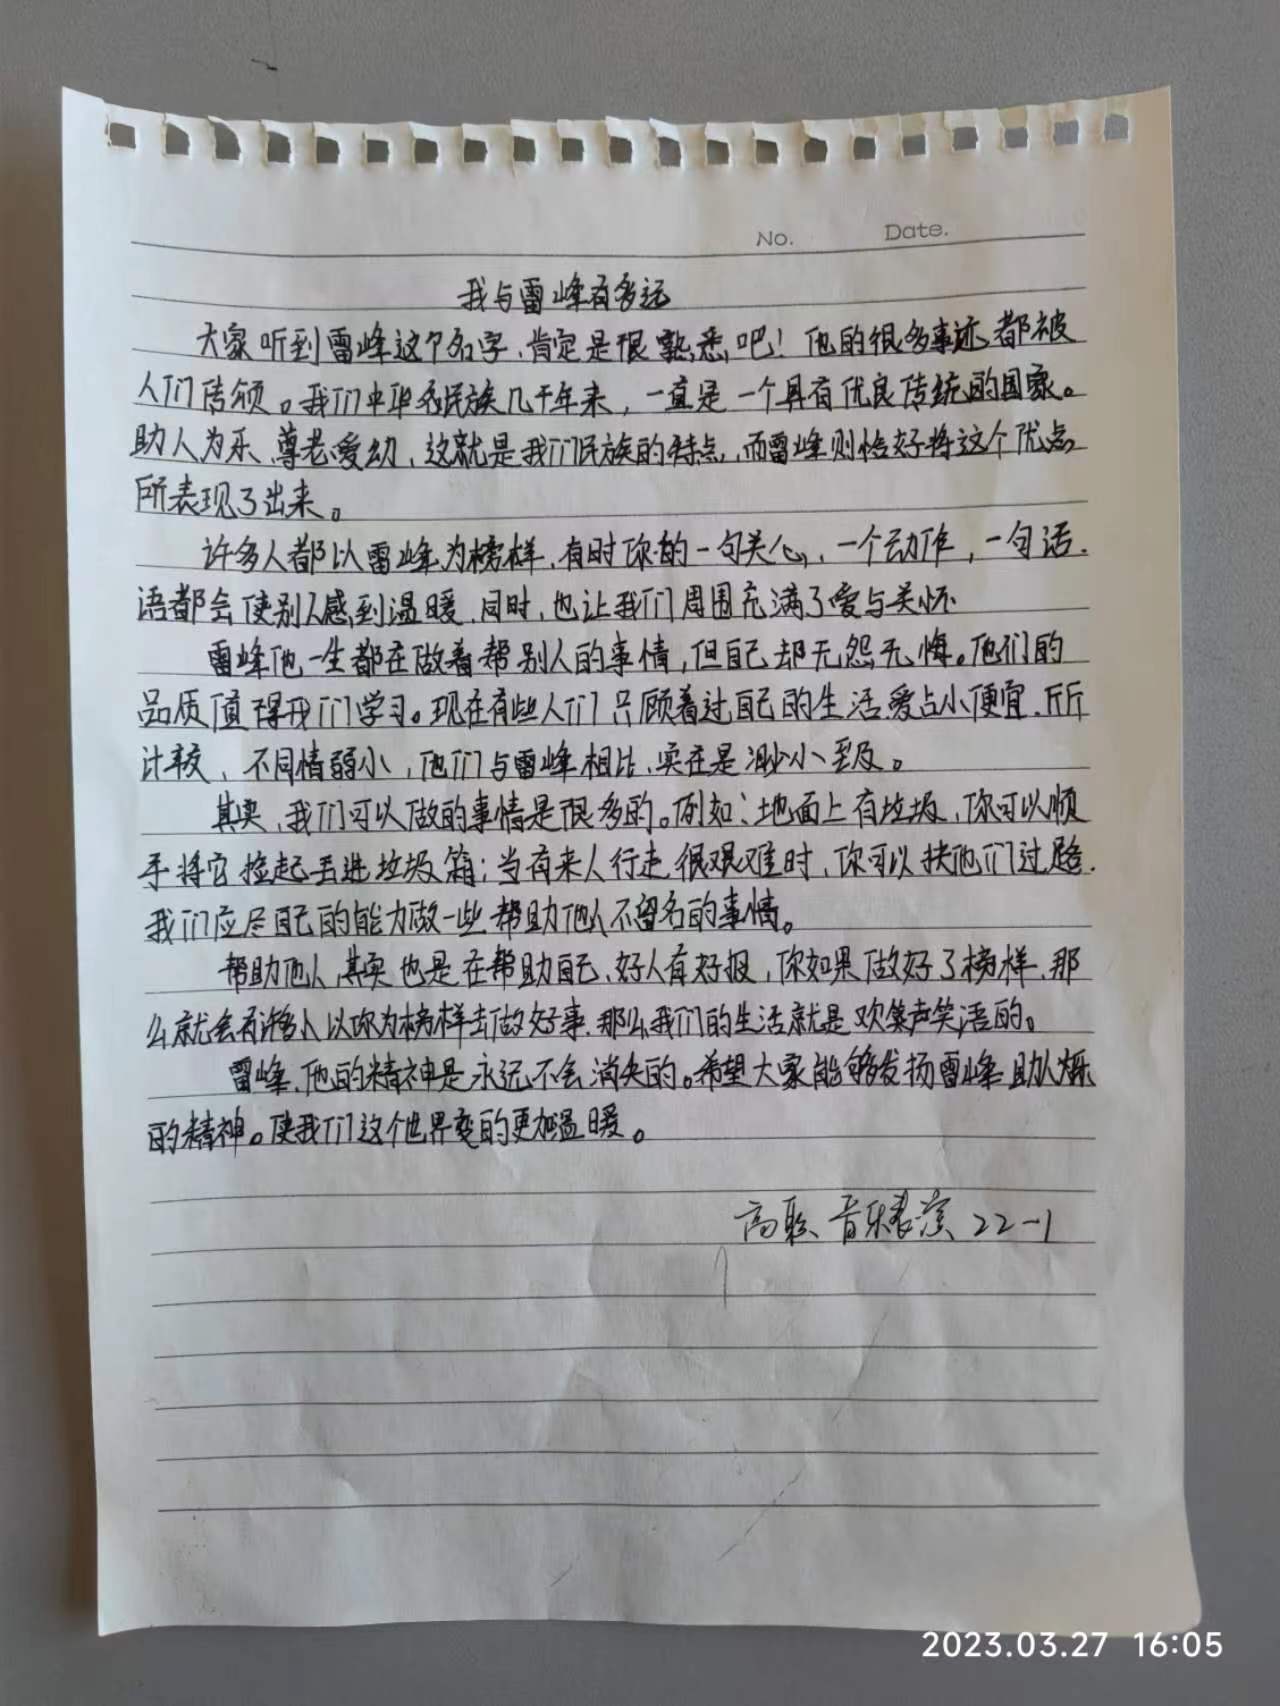 No. Date.
我与雷峰有多远
大家听到雷峰这个名字,肯定是很熟悉吧!他的很多事迹都被
人们传颂。我们中华民族几千年来,一直是一个具有优良传统的国家。
助人为乐、尊老爱幼,这就是我们民族的特点,而雷峰则恰好将这个优点
所表现了出来。
许多人都以雷峰为榜样,有时你的一句关心,一个动作,一句话.
语都会使别人感到温暖,同时,也让我们周围充满了爱与关怀
雷峰他一生都在做着帮别人的事情,但自己却无怨无悔。他们的
品质值得我们学习。现在有些人们只顾着过自己的生活爱占小便宜.斤斤
计较、不同情弱小,他们与雷峰相比,实在是渺小至极。
其实,我们可以做的事情是很多的。例如:地面上有垃圾,你可以顺
手将它捡起丢进垃圾箱;当有来人行走很艰难时,你可以扶他们过路.
我们应尽自己的能力做一些帮助他人不留名的事情。
帮助他人,其实也是在帮助自己、好人有好报,你如果做好了榜样,那
么就会有许多人以你为榜样去做好事,那么我们的生活就是欢笑声笑语的。
雷峰,他的精神是永远不会消失的。希望大家能够发扬雷峰助人为乐
的精神。使我们这个世界变的更加温暖。
高职 音乐表演 22-1
2023.03.27 16:05